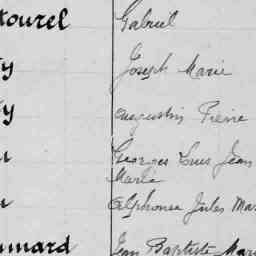 tourel Gabriel
y Joseph Marie
y Augustin Pierre
Georges Luis Jean
Marie
Alphonse Jules Mar
mard Jean Baptiste Mari